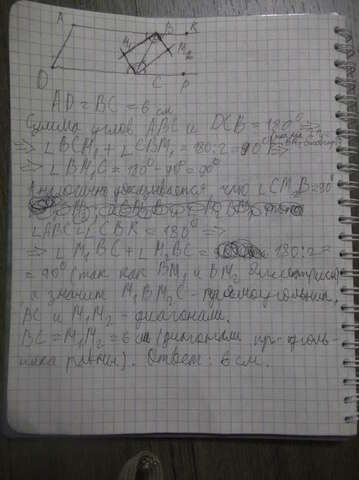 A B K
M₁ M₂
D C P
AD = BC = 6 см
Сумма углов ABC и DCB = 180° ⟹
⟹ ∠BCM₁ + ∠CBM₁ = 180:2 = 90°
⟹ ∠BM₁C = 180° - 90° = 90°
Аналогично доказывается, что ∠CM₂B = 90°
∠ABC + ∠CBK = 180° ⟹
⟹ ∠M₁BC + ∠M₂BC = 180:2 =
= 90° (так как BM₁ и BM₂ биссектрисы)
а значит M₁BM₂C - прямоугольник,
BC и M₁M₂ - диагонали.
BC = M₁M₂ = 6 см (диагонали пр-уголь-
ника равны). Ответ: 6 см.